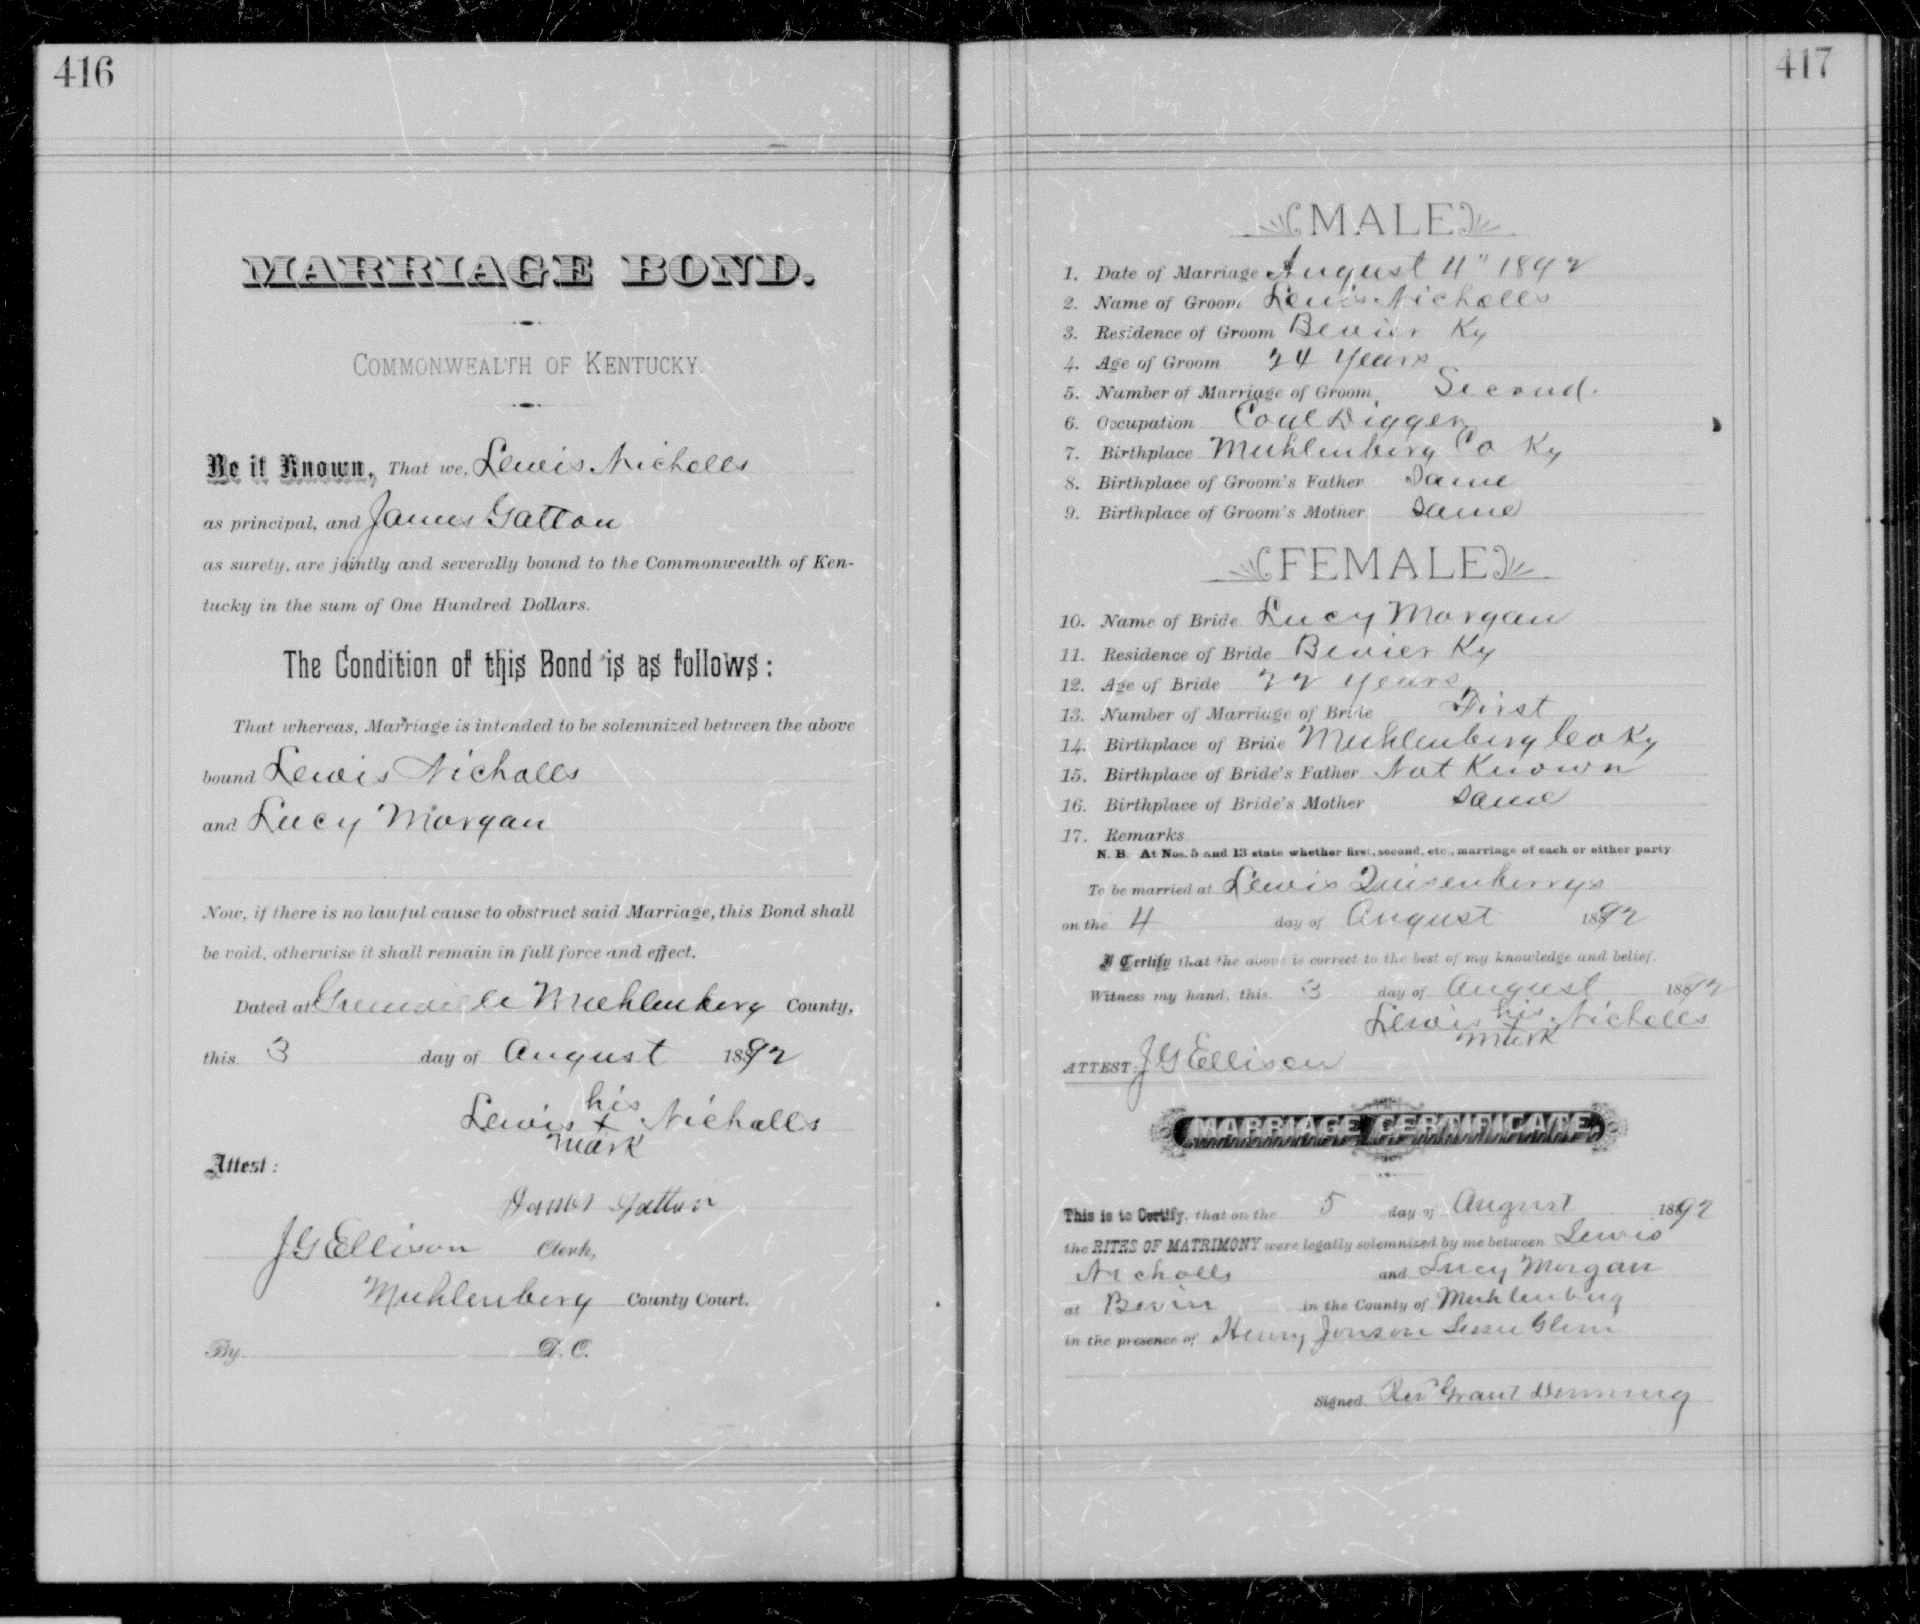 416
MARRIAGE BOND.
COMMONWEALTH OF KENTUCKY.
Be it Known, That we, Lewis Nicholls
as principal, and James Gatton
as surety, are jointly and severally bound to the Commonwealth of Ken-
tucky in the sum of One Hundred Dollars.
The Condition of this Bond is as follows:
That whereas, Marriage is intended to be solemnized between the above
bound Lewis Nicholls
and Lucy Morgan
Now, if there is no lawful cause to obstruct said Marriage, this Bond shall
be void, otherwise it shall remain in full force and effect.
Dated at Greenville Muhlenberg County,
this 3 day of August 1892
his
Lewis x Nicholls
mark
Attest:
James Gatton
J G Ellison Clerk,
Muhlenberg County Court.
By D. C.
417
MALE
1. Date of Marriage August 4" 1892
2. Name of Groom Lewis Nicholls
3. Residence of Groom Bevier Ky
4. Age of Groom 24 years
5. Number of Marriage of Groom Second.
6. Occupation Coal Digger
7. Birthplace Muhlenberg Co Ky
8. Birthplace of Groom's Father Same
9. Birthplace of Groom's Mother Same
FEMALE
10. Name of Bride Lucy Morgan
11. Residence of Bride Bevier Ky
12. Age of Bride 22 years
13. Number of Marriage of Bride First
14. Birthplace of Bride Muhlenberg Co Ky
15. Birthplace of Bride's Father Not Known
16. Birthplace of Bride's Mother Same
17. Remarks
N. B. At Nos. 5 and 13 state whether first, second, etc., marriage of each or either party
To be married at Lewis Quisenberrys
on the 4 day of August 1892
I Certify that the above is correct to the best of my knowledge and belief.
Witness my hand, this 3 day of August 1892
his
Lewis x Nicholls
mark
ATTEST: J G Ellison
MARRIAGE CERTIFICATE
This is to Certify, that on the 5 day of August 1892
the RITES OF MATRIMONY were legally solemnized by me between Lewis
Nicholls and Lucy Morgan
at Bevier in the County of Muhlenburg
in the presence of Henry Jonson
Signed Rev Grant